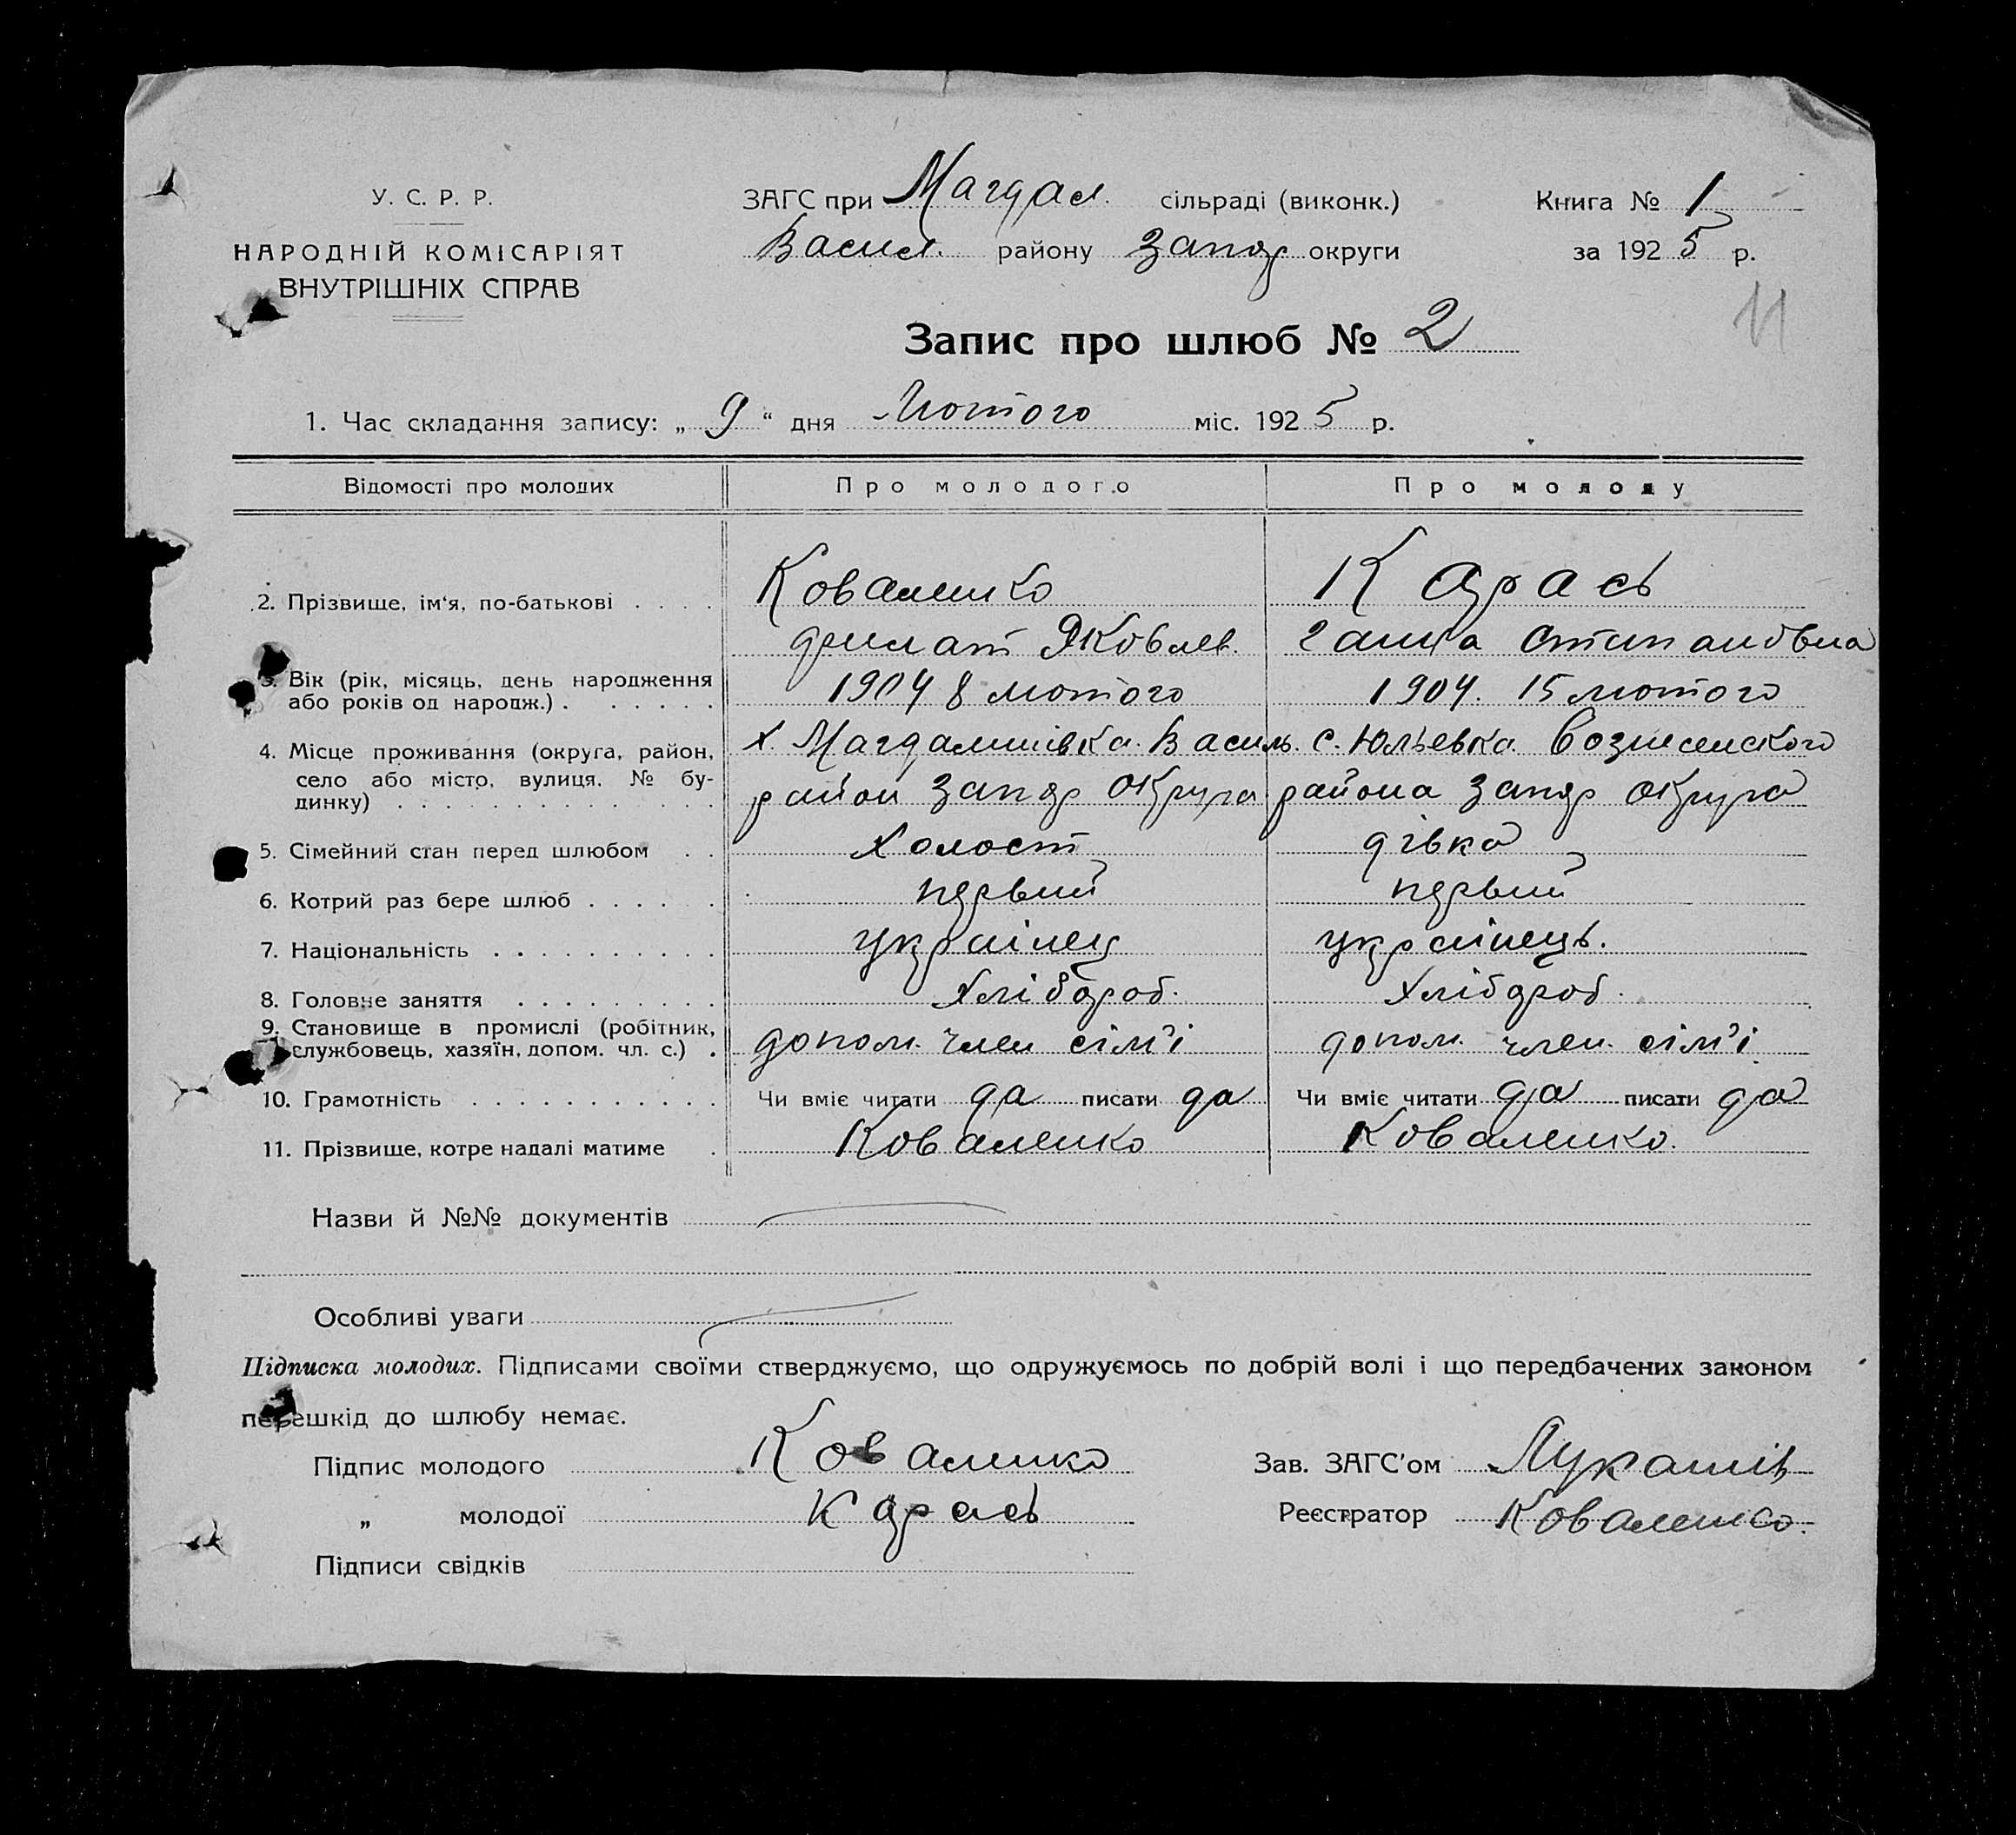 У. С. Р. Р.
НАРОДНІЙ КОМІСАРІЯТ
ВНУТРІШНІХ СПРАВ
ЗАГС при Магдал. сільраді (виконк.)
Васил. району Запор округи
Книга № 1
за 1925 р.
11
Запис про шлюб № 2
1. Час складання запису: „ 9 “ дня Лютого міс. 1925 р.
Відомості про молодих Про молодого Про молоду
2. Прізвище, ім‘я, по-батькові Коваленко Карась
Яковлев. Ганна Степановна
3. Вік (рік, місяць, день народження 1904 8 лютого 1904. 15 лютого
або років од народж.)
4. Місце проживання (округа, район, х. Магдалинівка. Василь. с. Юльевка Вознесенского
село або місто, вулиця, № бу- район Запор округа района Запор округа
динку)
5. Сімейний стан перед шлюбом холост дівка
6. Котрий раз бере шлюб первий первий
7. Національність украінец украінець.
8. Головне заняття хлібороб. хлібороб.
9. Становище в промислі (робітник,
службовець, хазяїн, допом. чл. с.) допом. член сім'і допом. член. сім'і
10. Грамотність Чи вміє читати да писати да Чи вміє читати да писати да
11. Прізвище, котре надалі матиме Коваленко Коваленко.
Назви й №№ документів
Особливі уваги
Підписка молодих. Підписами своїми стверджуємо, що одружуємось по добрій волі і що передбачених законом
перешкід до шлюбу немає.
Підпис молодого Коваленко Зав. ЗАГС'ом
„ молодої Карась Реєстратор Коваленко.
Підписи свідків